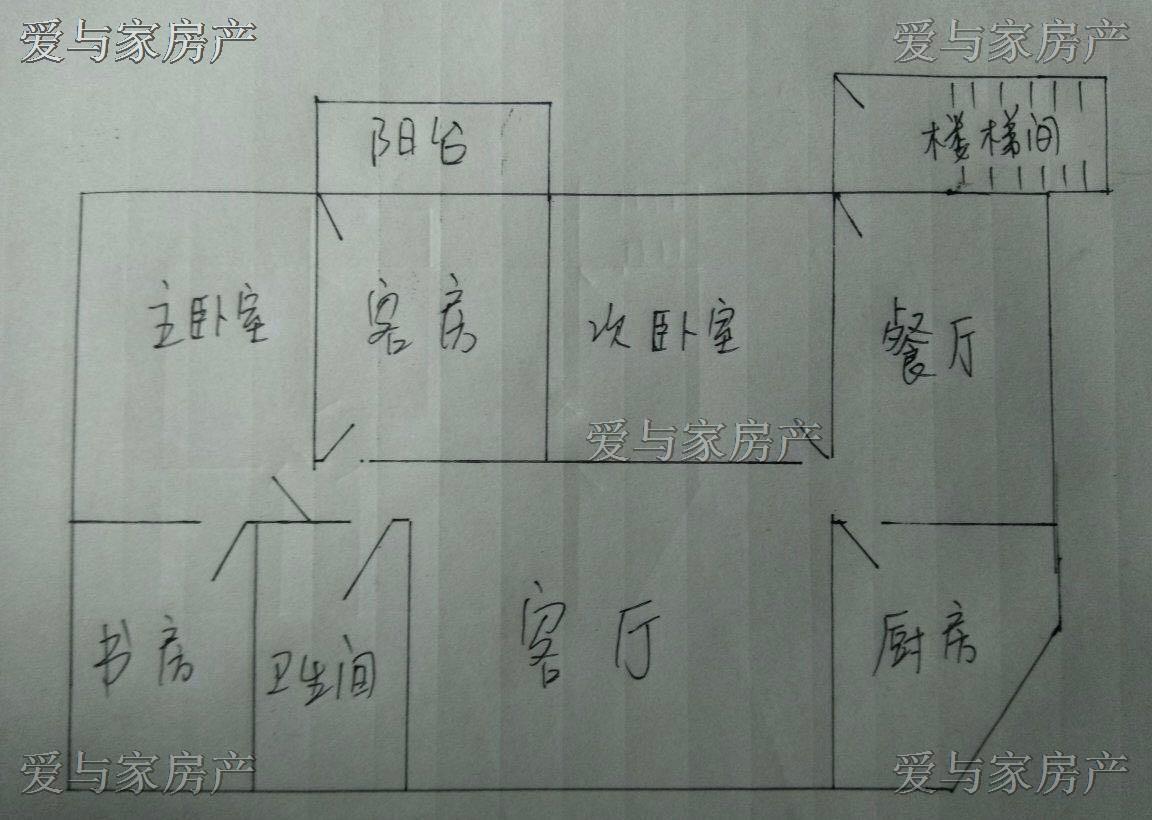 爱与家房产
爱与家房产
阳台
楼梯间
主卧室
客房
次卧室
餐厅
爱与家房产
书房
卫生间
客厅
厨房
爱与家房产
爱与家房产